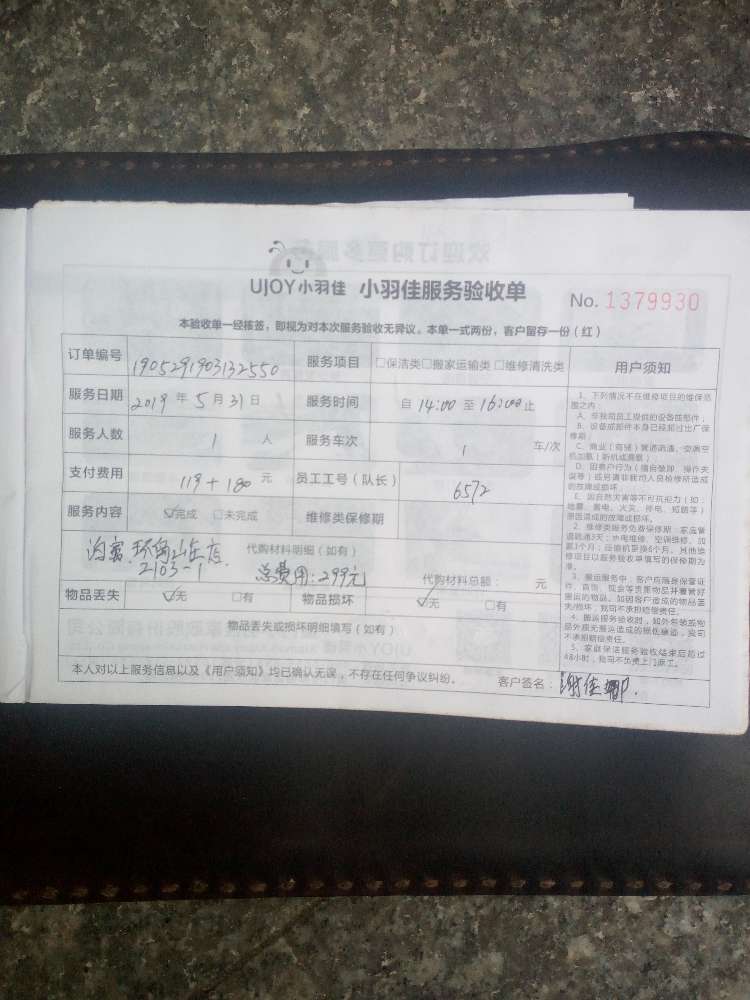 UJOY小羽佳 小羽佳服务验收单 No. 1379930
本验收单一经核签，即视为对本次服务验收无异议。本单一式两份，客户留存一份（红）
订单编号 1905291903132550 服务项目 □保洁类□搬家运输类□维修清洗类
服务日期 2019年5月31日 服务时间 自14:00至16:00止
服务人数 1 人 服务车次 1 车/次
支付费用 119+180 元 员工工号（队长） 6572
服务内容 ☑完成 □未完成 维修类保修期
环角山丘店
2103-1
代购材料明细（如有）
总费用:299元 代购材料总额： 元
物品丢失 ☑无 □有 物品损坏 ☑无 □有
物品丢失或损坏明细填写（如有）
本人对以上服务信息以及《用户须知》均已确认无误，不存在任何争议纠纷。 客户签名：谢佳娜
用户须知
1、下列情况不在维修项目的维保范
围之内：
A、非我司员工提供的设备或部件；
B、设备或部件本身已经超过出厂保
修期；
D、因客户行为（擅自装卸、操作失
误等）或另请非我司人员检修所造成
的故障或损坏；
E、因自然灾害等不可抗拒力（如：
地震、雷电、火灾、停电、短路等）
原因造成的故障或损坏。
2、维修类服务免费保修期：家庭管
道疏通3天；水电维修、空调维修、加
氟3个月；压缩机更换6个月，其他维
修项目以服务验收单填写的保修期为
准。
3、搬运服务中，客户应随身保管证
件、首饰、现金等贵重物品并看管好
搬运的物品。如因客户造成的物品丢
失/损坏，我司不承担赔偿责任。
4、搬运服务验收时，如外包装或物
品外观无搬运造成的损伤痕迹，我司
不承担赔偿责任。
5、家庭保洁服务验收结束后超过
48小时，我司不负责上门返工。